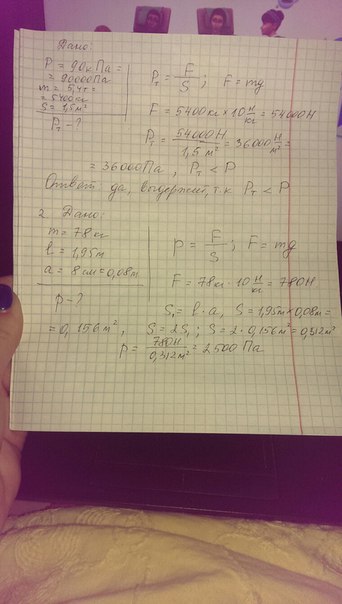 Дано:
P = 90кПа =
= 90000Па
m = 5,4т =
= 5400кг
S = 1,5м²
Pт - ?
Pт = F/S ; F = mg
F = 5400кг × 10 Н/кг = 54000Н
Pт = 54000Н/1,5м² = 36000 Н/м² =
= 36000Па , Pт < P
Ответ: да, выдержит, т.к Pт < P
2. Дано:
m = 78кг
l = 1,95м
a = 8см = 0,08м
p - ?
p = F/S ; F = mg
F = 78кг · 10 Н/кг = 780Н
S₁ = l · a, S = 1,95м × 0,08м =
= 0,156м², S = 2S₁ ; S = 2 · 0,156м² = 0,312м²
p = 780Н/0,312м² = 2500 Па